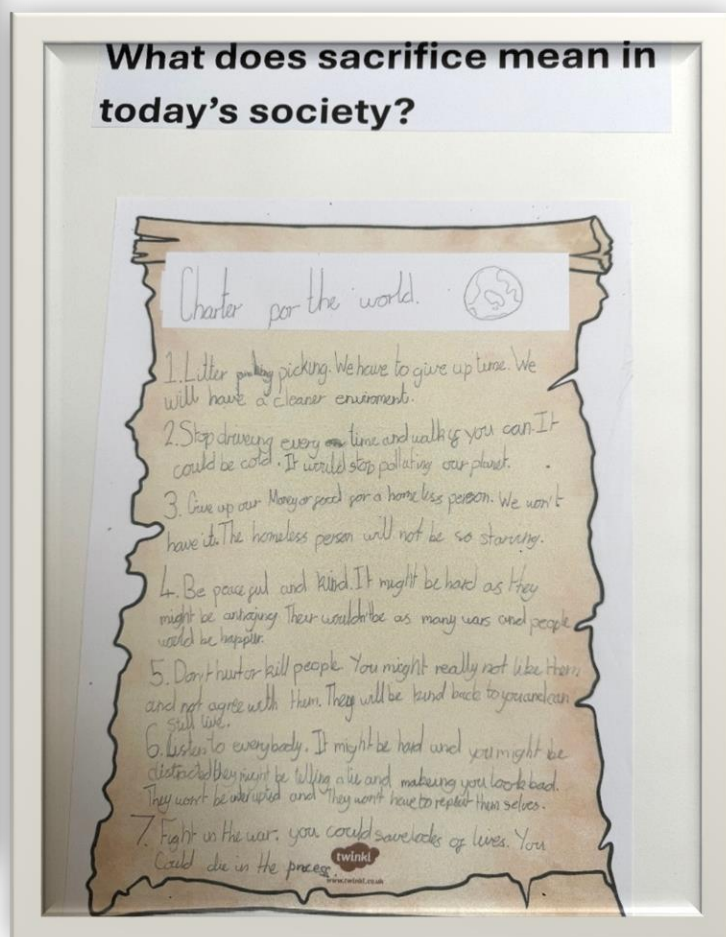 What does sacrifice mean in
today's society?
Charter for the world.
1. Litter picking. We have to give up time. We
will have a cleaner enviroment.
2. Stop driveing every time and walk if you can. It
could be cold. It would stop polluting our planet.
3. Give up our Money or food for a homeless person. We won't
have it. The homeless person will not be so starving.
4. Be peaceful and kind. It might be hard as they
might be annoying Their wouldn't be as many wars and people
would be happier.
5. Don't hurt or kill people. You might really not like them
and not agree with them. They will be kind back to you and can
still live.
6. Listen to everybody. It might be hard and you might be
they might be telling a lie and makeing you look bad.
They won't be interupted and They won't have to repeat them selves.
7. Fight in the war. you could save lodes of lives. You
Could die in the process.
twinkl
www.twinkl.co.uk